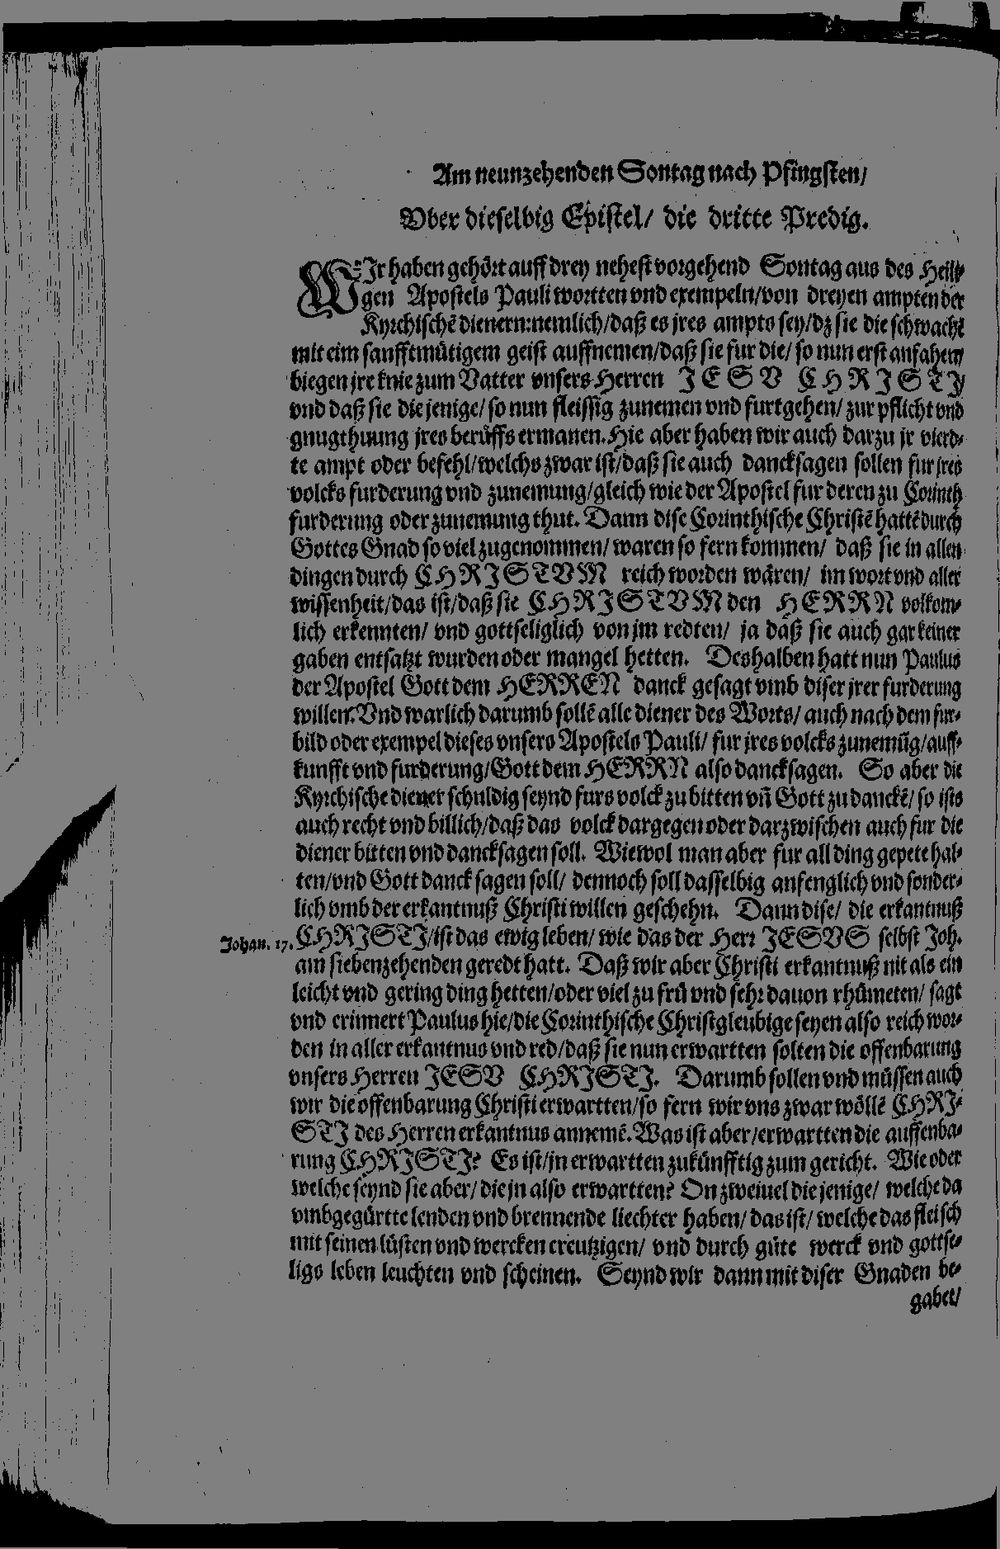 Am neunzehenden Sontag nach Pfingsten/
Vber dieselbig Epistel/ die dritte Predig.
WIr haben gehört auff drey nehest vorgehend Sontag aus des Heili-
gen Apostels Pauli wortten vnd exempeln/von dreyen ampten der
Kyrchischē dienern:nemlich/daß es jres ampts sey/dz sie die schwachē
mit eim sanfftmütigem geist auffnemen/daß sie fur die/ so nun erst anfahen/
biegen jre knie zum Vatter vnsers Herren JESV CHRISTJ/
vnd daß sie die jenige/ so nun fleissig zunemen vnd furtgehen/ zur pflicht vnd
gnugthuung jres berüffs ermanen. Hie aber haben wir auch darzu jr vierd-
te ampt oder befehl/welchs zwar ist/daß sie auch dancksagen sollen fur jres
volcks furderung vnd zunemung/gleich wie der Apostel fur deren zu Corinth
furderung oder zunemung thut. Dann dise Corinthische Christē hattē durch
Gottes Gnad so viel zugenommen/ waren so fern kommen/ daß sie in allen
dingen durch CHRISTVM reich worden wären/ im wort vnd aller
wissenheit/das ist/daß sie CHRISTVM den HERRN volkom-
lich erkennten/ vnd gottseliglich von jm redten/ ja daß sie auch gar keiner
gaben entsatzt wurden oder mangel hetten. Deshalben hatt nun Paulus
der Apostel Gott dem HERREN danck gesagt vmb diser jrer furderung
willen. Vnd warlich darumb sollē alle diener des Worts/ auch nach dem fur-
bild oder exempel dieses vnsers Apostels Pauli/ fur jres volcks zunemūg/auff-
kunfft vnd furderung/Gott dem HERRN also dancksagen. So aber die
Kyrchische diener schuldig seynd furs volck zu bitten vñ Gott zu danckē/ so ists
auch recht vnd billich/daß das volck dargegen oder darzwischen auch fur die
diener bitten vnd dancksagen soll. Wiewol man aber fur all ding gepete hal-
ten/vnd Gott danck sagen soll/ dennoch soll dasselbig anfenglich vnd sonder-
lich vmb der erkantnuß Christi willen geschehn. Dann dise/ die erkantnuß
Johan. 17. CHRISTJ/ist das ewig leben/ wie das der Herr JESVS selbst Joh.
am siebenzehenden geredt hatt. Daß wir aber Christi erkantnuß nit als ein
leicht vnd gering ding hetten/oder viel zu frü vnd sehr dauon rhümeten/ sagt
vnd erinnert Paulus hie/die Corinthische Christgleubige seyen also reich wor-
den in aller erkantnus vnd red/daß sie nun erwartten solten die offenbarung
vnsers Herren JESV CHRISTJ. Darumb sollen vnd müssen auch
wir die offenbarung Christi erwartten/so fern wir vns zwar wöllē CHRJ-
STJ des Herren erkantnus annemē. Was ist aber/erwartten die auffenba-
rung CHRISTJ? Es ist/jn erwartten zukünfftig zum gericht. Wie oder
welche seynd sie aber/ die jn also erwartten? On zweiuel die jenige/ welche da
vmbgegürtte lenden vnd brennende liechter haben/ das ist/ welche das fleisch
mit seinen lüsten vnd wercken creutzigen/ vnd durch güte werck vnd gottse-
ligs leben leuchten vnd scheinen. Seynd wir dann mit diser Gnaden be-
gabet/